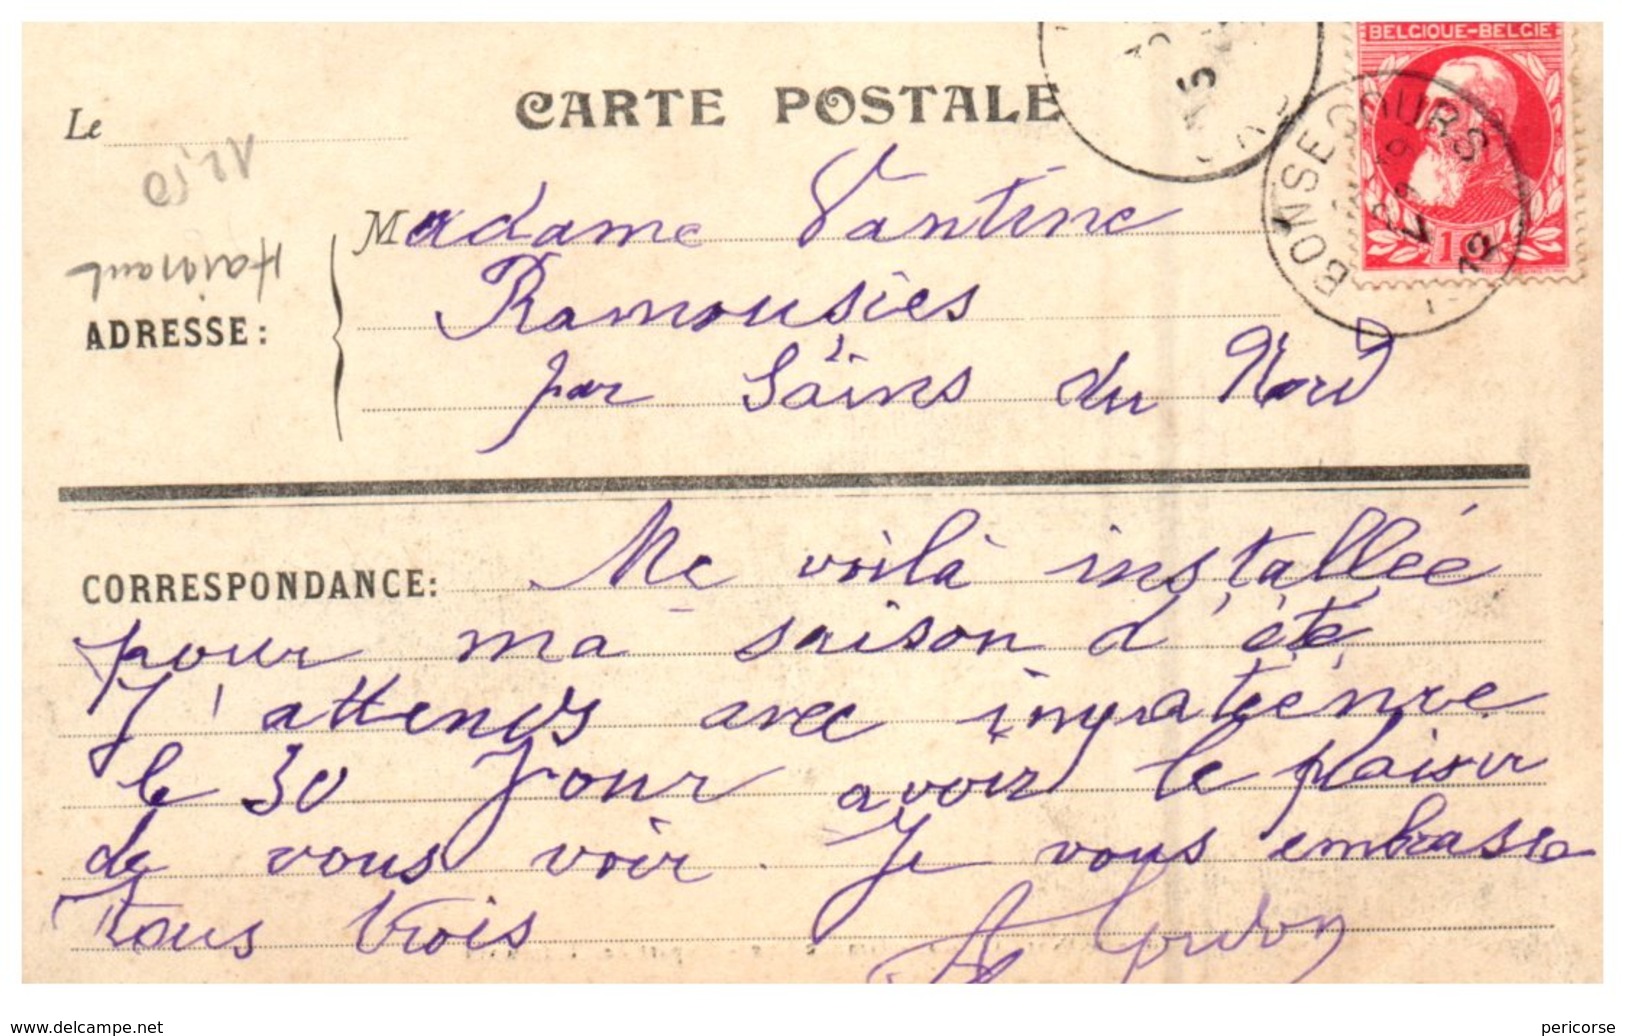 BELGIQUE-BELGIË
CARTE POSTALE
Le
BONSECOURS
12
12,50
Madame Vantine
Hainaut
Ramousies
ADRESSE:
par Sains du Nord
CORRESPONDANCE: Me voilà installée
pour ma saison d'été
J'attends avec impatience
le 30 pour avoir le plaisir
de vous voir. Je vous embrasse
Tous trois
www.delcampe.net
pericorse